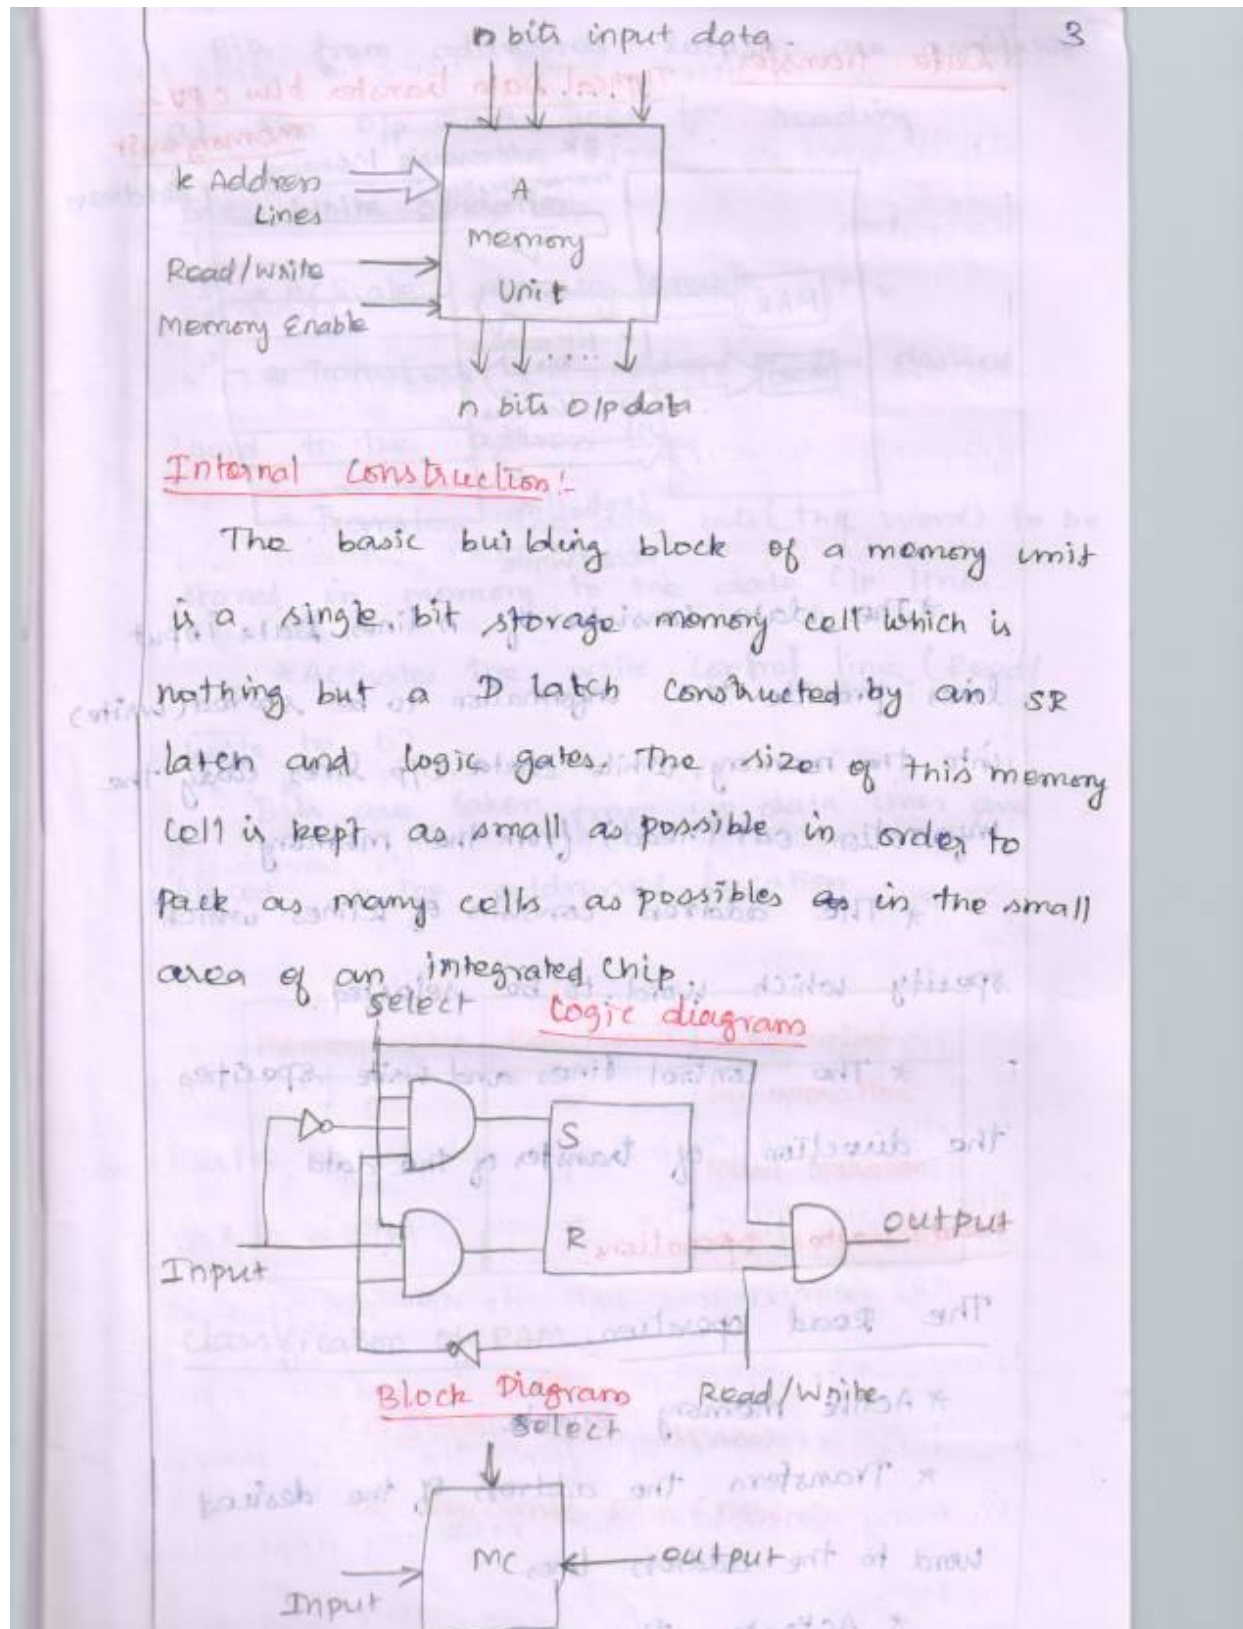 3
n bits input data.
k Address
Lines
A
Memory
Unit
Read/Write
Memory Enable
n bits O/P data
Internal Construction:-
The basic building block of a memory unit
is a single bit storage memory cell which is
nothing but a D latch constructed by an SR
latch and logic gates. The size of this memory
cell is kept as small as possible in order to
Pack as many cells as possibles as in the small
area of an integrated chip.
Select
Logic diagram
S
R
Output
Input
Read/Write
Block Diagram
Select
MC
Output
Input